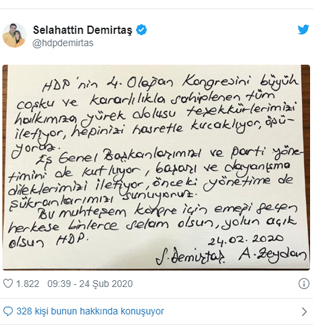 Selahattin Demirtaş
@hdpdemirtas
HDP'nin 4. Olağan Kongresini büyük
coşku ve kararlılıkla sahiplenen tüm
halkımıza yürek dolusu teşekkürlerimizi
iletiyor, hepinizi hasretle kucaklıyor, öpü-
yoruz.
Eş Genel Başkanlarımızı ve parti yöne-
timini de kutluyor, başarı ve dayanışma
dileklerimizi iletiyor, önceki yönetime de
şükranlarımızı sunuyoruz.
Bu muhteşem kongre için emeği geçen
herkese binlerce selam olsun, yolun açık
olsun HDP.
24.02.2020
S. Demirtaş A. Zeydan
1.822 09:39 - 24 Şub 2020
328 kişi bunun hakkında konuşuyor